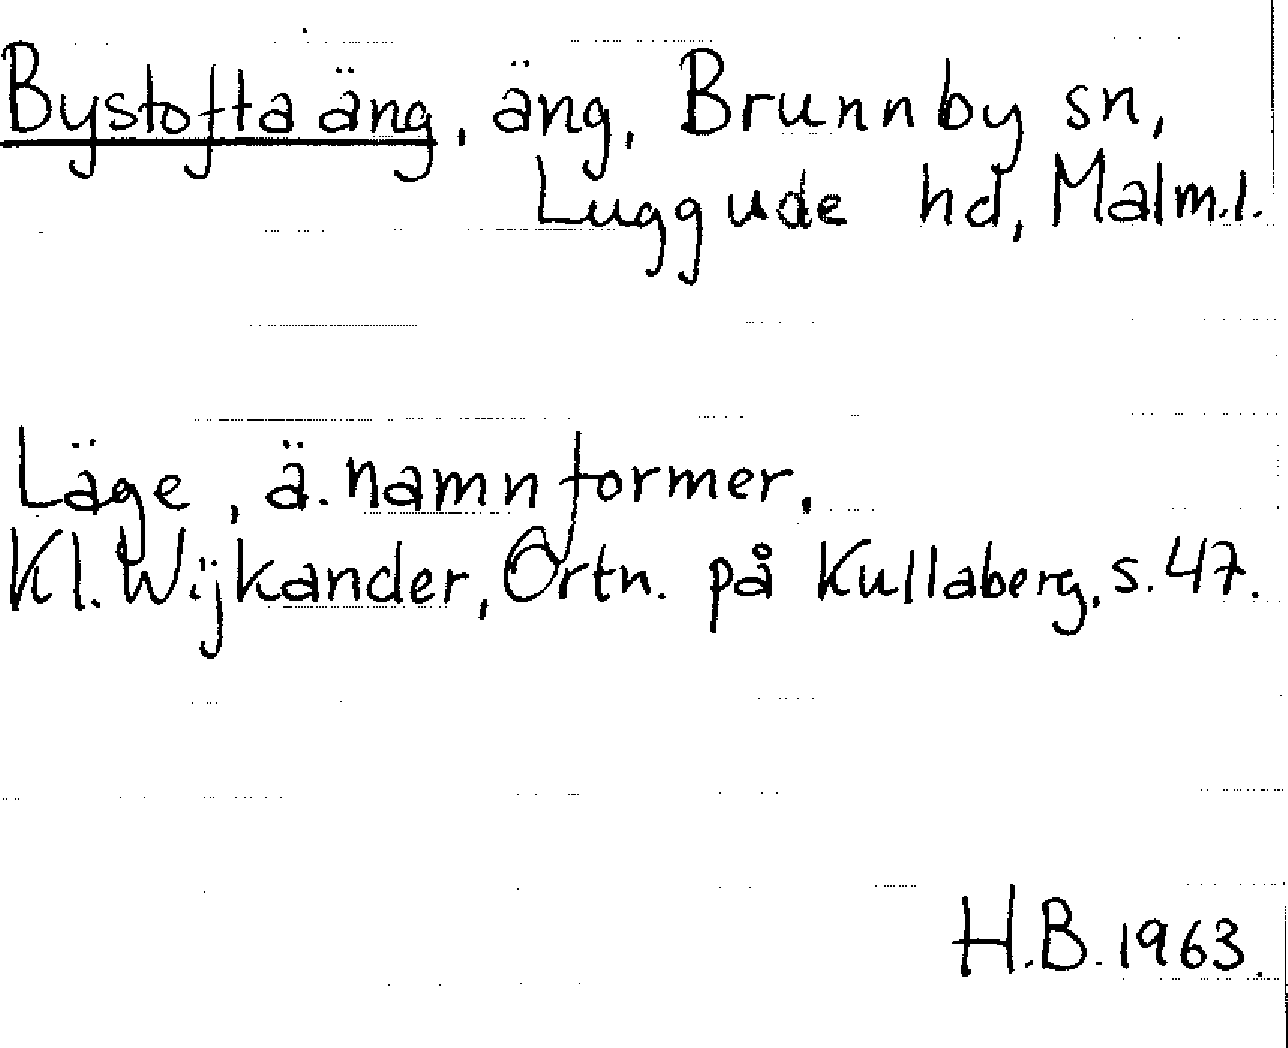 Bystofta äng, äng, Brunnby sn,
Luggude hd, Malm.l.
Läge, ä. namnformer,
Kl. Wijkander, Ortn. på Kullaberg, s. 47.
H.B. 1963.